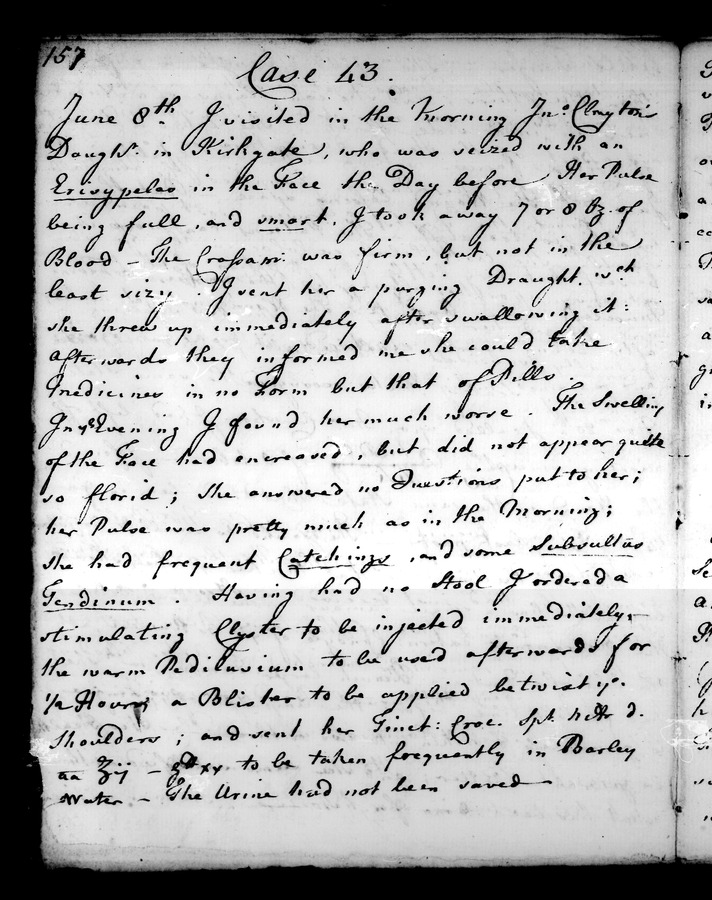 157
Case 43.
June 8th I visited in the Morning Jno. Clayton's
Daughtr. in Kirkgate, who was seized with an
Erisypelas in the Face the Day before. Her Pulse
being full, and smart, I took away 7 or 8 ℥. of
Blood – The Crassam: was firm, but not in the
least sizy. I sent her a purging Draught, wch
she threw up immediately after swallowing it:
afterwards they informed me she could take
Medicines in no Form but that of Pills.
In ye Evening I found her much worse. The Swelling
of the Face had encreased, but did not appear quite
so florid; She answered no Questions put to her;
her Pulse was pretty much as in the Morning;
she had frequent Catchings, and some Subsultus
Tendinum. Having had no Stool I ordered a
stimulating Clyster to be injected immediately,
the warm Pediluvium to be used afterwards for
1/2 Hour; a Blister to be applied betwixt ye.
Shoulders; and sent her Tinct: Croc. Spt. Nitr d.
aa ʒij – gtt xx to be taken frequently in Barley
Water – The Urine had not been saved –